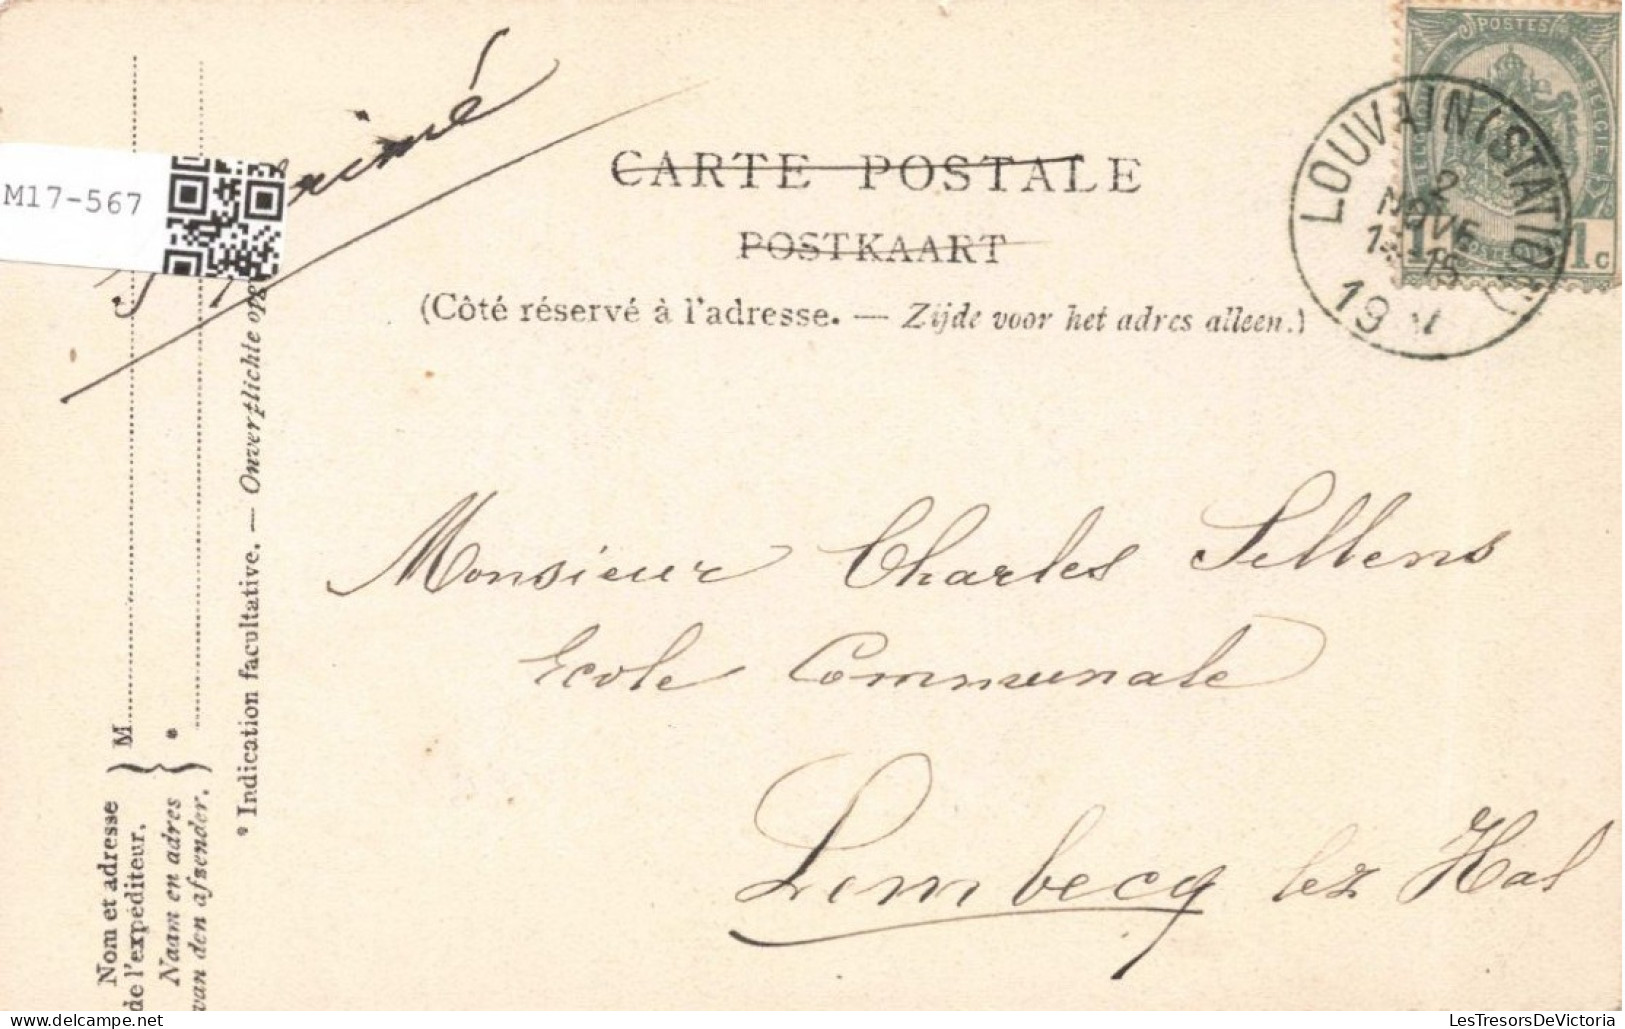 M17-567
CARTE POSTALE
POSTKAART
(Côté réservé à l'adresse. — Zijde voor het adres alleen.)
POSTES
LOUVAIN (STATION)
2
NOVE
15
19
1 1c
Monsieur Charles Sellens
Ecole Communale
Lembecq lez Hal
M
*
Nom et adresse
de l'expéditeur.
Naam en adres
van den afzender.
* Indication facultative. — Onverplichte
LesTresorsDeVictoria